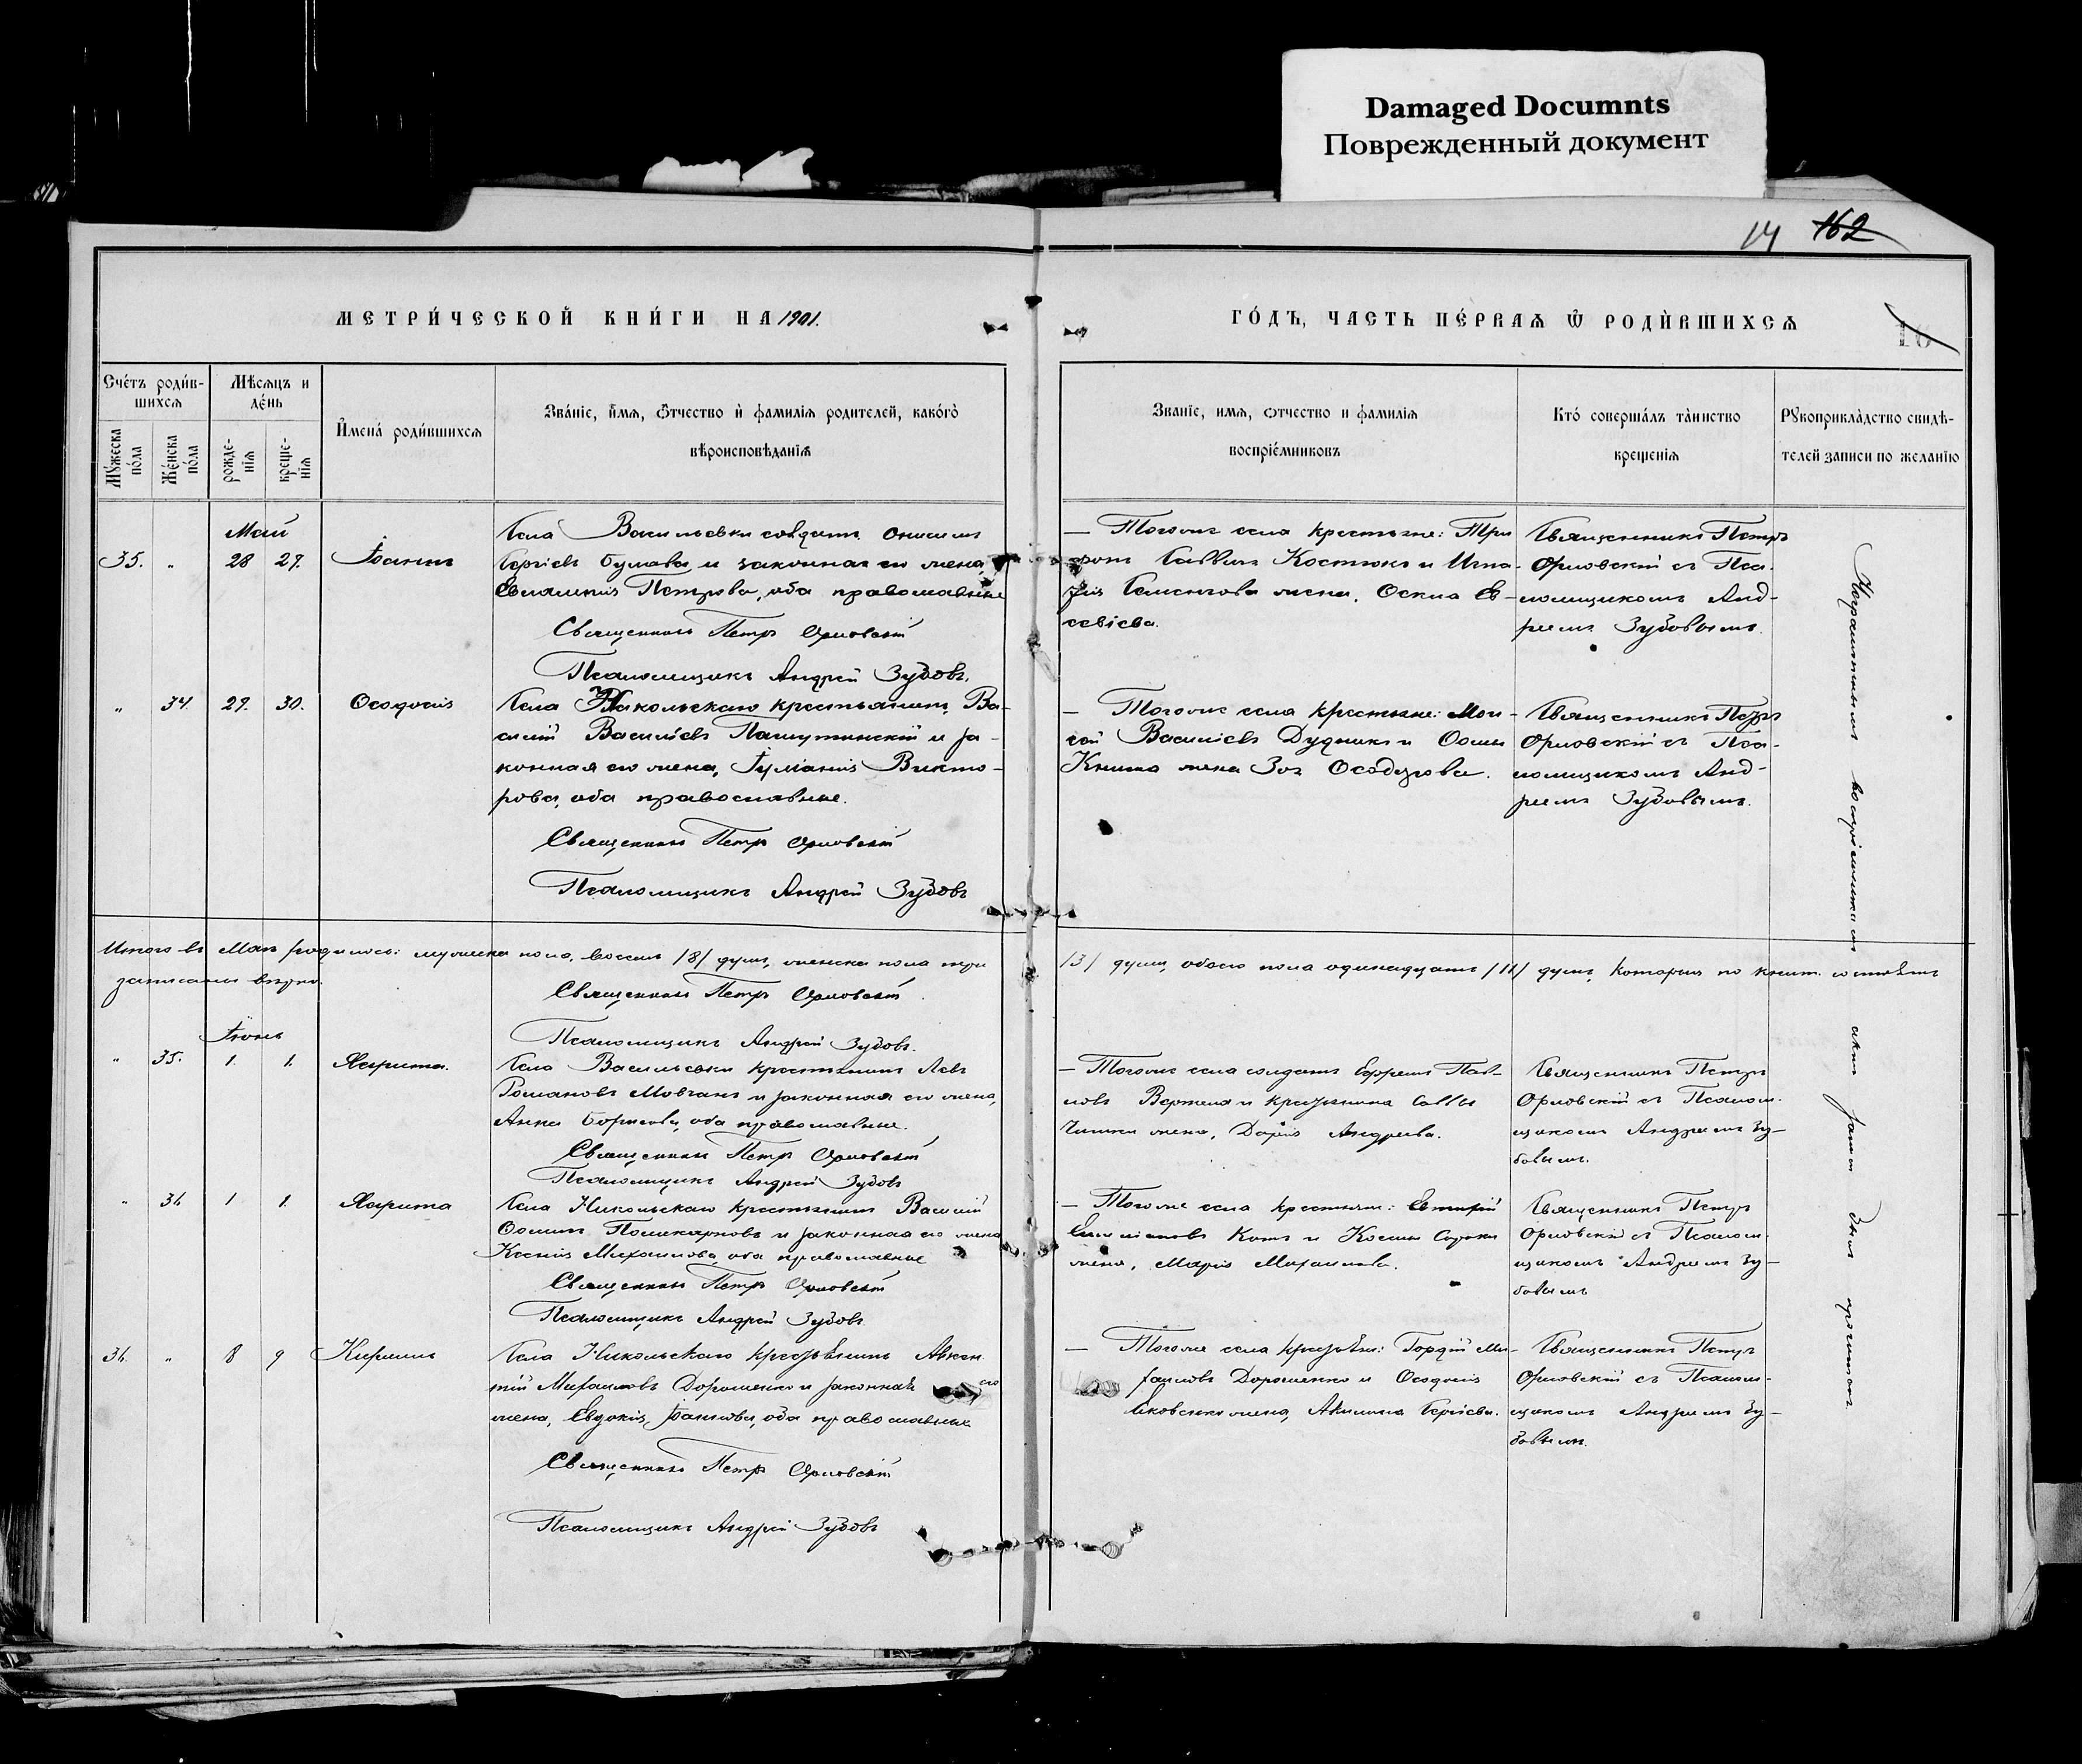 Damaged Documnts
Поврежденный документ
14 162
МЕТРИ́ЧЕСКОЙ КНИ́ГИ НА 1901.
ГО́ДЪ, ЧАСТЬ ПЕ́РВАѦ Ѿ РОДИ́ВШИХСѦ
16
Счéтъ роди́в-
шихсѧ
Мѣсѧцъ и
дéнь
Мꙋ́жеска
пóла
Жéнска
пóла
рожде-
нїѧ
креще-
нїѧ
И҆мена̀ роди́вшихсѧ
Звáнїе, и҆́мѧ, ѻ҆́тчество и҆ фамилїѧ родителей, какóгѡ
вѣроисповѣданїѧ
Званїе, имѧ, ѻтчество и фамилїѧ
воспрїéмниковъ
Ктó совершáлъ тáинство
крещенїѧ
Рꙋкоприклáдство свидѣ-
телей записи по желанїю
Май
35. „ 28 29. Іоаннъ
Села Васильевки солдатъ Онисимъ
Сергіевъ Булава и законная его жена,
Петрова, оба православные
Священникъ Петръ Орловскій
Псаломщикъ Андрей Зубовъ.
— Тогоже села крестьяне: Три
фонъ Саввинъ Костюкъ и Игна-
жена, Ев-
севіева.
Священникъ Петръ
Орловскій съ Пса-
ломщикомъ Анд-
реемъ Зубовымъ.
„ 34 29. 30. Ѳеодосія
Села Никольскаго крестьянинъ, Ва-
силій Васильевъ Пашутинскій и за-
конная его жена, Іуліанія Викто-
рова, оба православные.
Священникъ Петръ Орловскій
Псаломщикъ Андрей Зубовъ
— Тогоже села крестьяне: Мои-
сей Васильевъ Дудникъ и Ѳомы
Книша жена Зоя Ѳеодорова.
Священникъ Петръ
Орловскій съ Пса-
ломщикомъ Анд-
реемъ Зубовымъ.
Итого въ Маѣ родилось: мужеска пола, восемь /8/ душъ, женска пола три
/3/ души, обоего пола одинадцать /11/ душъ, которыя по
записаны вѣрно.
Священникъ Петръ Орловскій.
Псаломщикъ Андрей Зубовъ.
Іюнь
„ 35. 1. 1.
Села Васильевки крестьянинъ Левъ
Романовъ Мовчанъ и законная его жена,
Анна Борисова, оба православные.
Священникъ Петръ Орловскій
Псаломщикъ Андрей Зубовъ
— Тогоже села солдатъ Ефремъ Пав-
ловъ и крестьянина Саввы
жена, Дарія Андреева.
Священникъ Петръ
Орловскій съ Псалом-
щикомъ Андреемъ Зу-
бовымъ.
„ 36 1 1.
Села Никольскаго крестьянинъ Василій
Ѳоминъ и законная его жена
Ксенія Михаилова, оба православные
Священникъ Петръ Орловскій
Псаломщикъ Андрей Зубовъ
— Тогоже села крестьяне:
Котъ и Космы Сороки
жена, Марія Михаилова.
Священникъ Петръ
Орловскій съ Псалом-
щикомъ Андреемъ Зу-
бовымъ
36. „ 8 9 Кириллъ
Села Никольскаго крестьянинъ Авксен-
тій Михаиловъ Дорошенко и законная его
жена, Евдокія Іоаннова, оба православные
Священникъ Петръ Орловскій
Псаломщикъ Андрей Зубовъ
— Тогоже села крестьяне: Гордій Ми-
хаиловъ Дорошенко и Ѳеодосія
Яковенко жена, Акилина Сергіева.
Священникъ Петръ
Орловскій съ Псалом-
щикомъ Андреемъ Зу-
бовымъ.
Неграмотнымъ воспріемникамъ